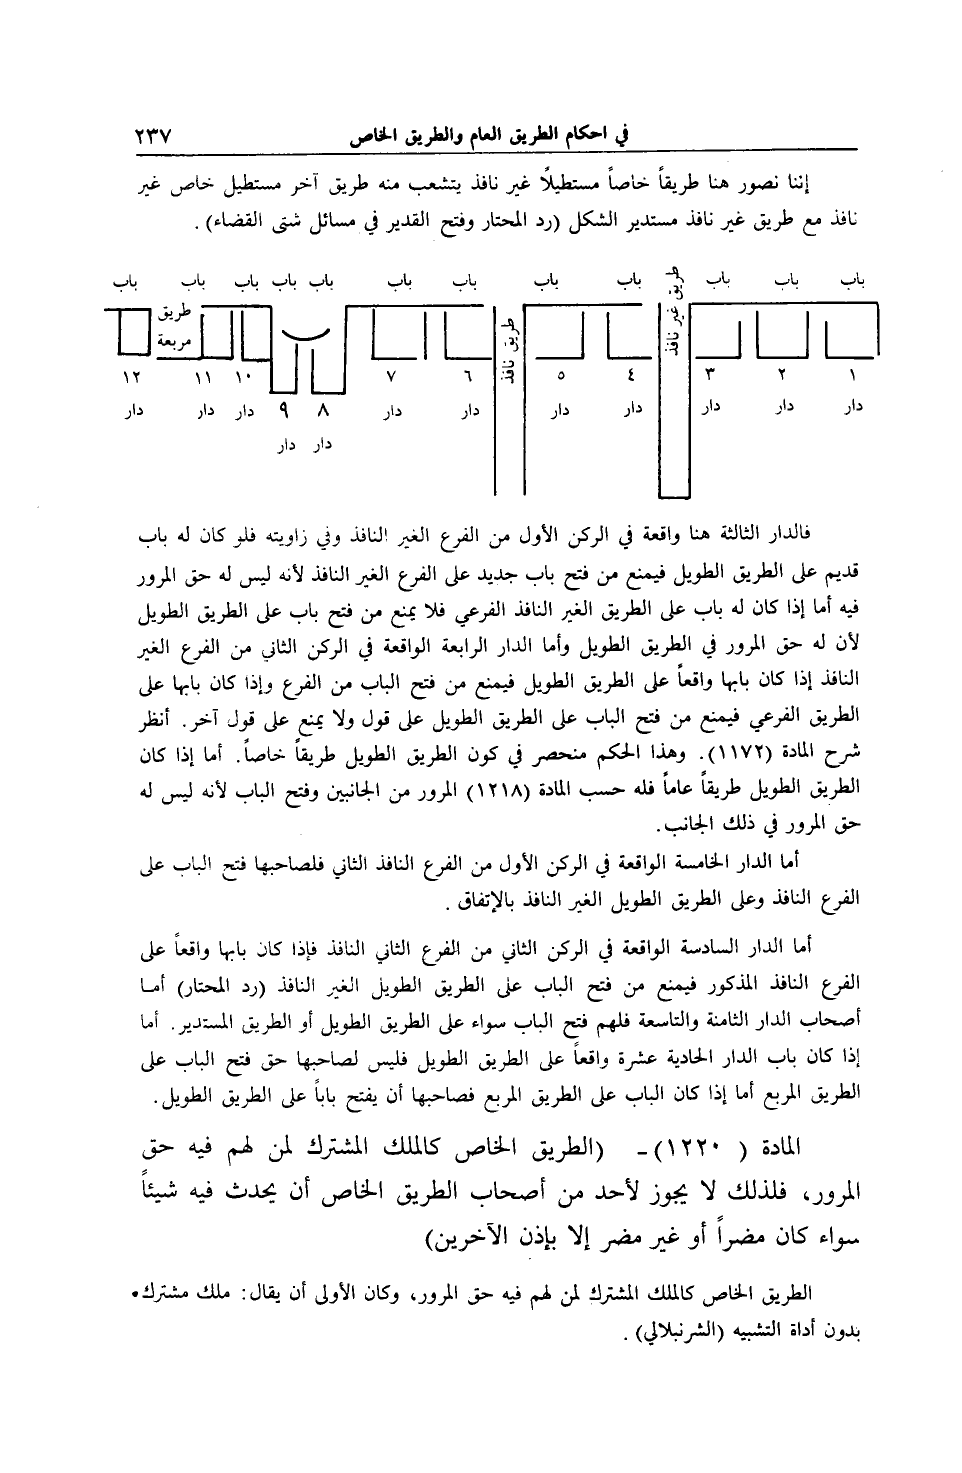 في احكام الطريق العام والطريق الخاص ٢٣٧
إننا نصور هنا طريقاً خاصاً مستطيلًا غير نافذ يتشعب منه طريق آخر مستطيل خاص غير
نافذ مع طريق غير نافذ مستدير الشكل (رد المحتار وفتح القدير في مسائل شتى القضاء) .
باب باب باب طريق غير نافذ باب باب طريق نافذ باب باب باب باب باب باب باب
طريق
مربعة
١ ٢ ٣ ٤ ٥ ٦ ٧ ٨ ٩ ١٠ ١١ ١٢
دار دار دار دار دار دار دار دار دار دار
دار دار
فالدار الثالثة هنا واقعة في الركن الأول من الفرع الغير النافذ وفي زاويته فلو كان له باب
قديم على الطريق الطويل فيمنع من فتح باب جديد على الفرع الغير النافذ لأنه ليس له حق المرور
فيه أما إذا كان له باب على الطريق الغير النافذ الفرعي فلا يمنع من فتح باب على الطريق الطويل
لأن له حق المرور في الطريق الطويل وأما الدار الرابعة الواقعة في الركن الثاني من الفرع الغير
النافذ إذا كان بابها واقعاً على الطريق الطويل فيمنع من فتح الباب من الفرع وإذا كان بابها على
الطريق الفرعي فيمنع من فتح الباب على الطريق الطويل على قول ولا يمنع على قول آخر. أنظر
شرح المادة (١١٧٢). وهذا الحكم منحصر في كون الطريق الطويل طريقاً خاصاً. أما إذا كان
الطريق الطويل طريقاً عاماً فله حسب المادة (١٢١٨) المرور من الجانبين وفتح الباب لأنه ليس له
حق المرور في ذلك الجانب.
أما الدار الخامسة الواقعة في الركن الأول من الفرع النافذ الثاني فلصاحبها فتح الباب على
الفرع النافذ وعلى الطريق الطويل الغير النافذ بالإتفاق .
أما الدار السادسة الواقعة في الركن الثاني من الفرع الثاني النافذ فإذا كان بابها واقعاً على
الفرع النافذ المذكور فيمنع من فتح الباب على الطريق الطويل الغير النافذ (رد المحتار) أما
أصحاب الدار الثامنة والتاسعة فلهم فتح الباب سواء على الطريق الطويل أو الطريق المستدير. أما
إذا كان باب الدار الحادية عشرة واقعاً على الطريق الطويل فليس لصاحبها حق فتح الباب على
الطريق المربع أما إذا كان الباب على الطريق المربع فصاحبها أن يفتح باباً على الطريق الطويل.
المادة ( ١٢٢٠) - (الطريق الخاص كالملك المشترك لمن لهم فيه حق
المرور، فلذلك لا يجوز لأحد من أصحاب الطريق الخاص أن يحدث فيه شيئاً
سواء كان مضراً أو غير مضر إلا بإذن الآخرين)
الطريق الخاص كالملك المشترك لمن لهم فيه حق المرور، وكان الأولى أن يقال: ملك مشترك.
بدون أداة التشبيه (الشرنبلالي) .